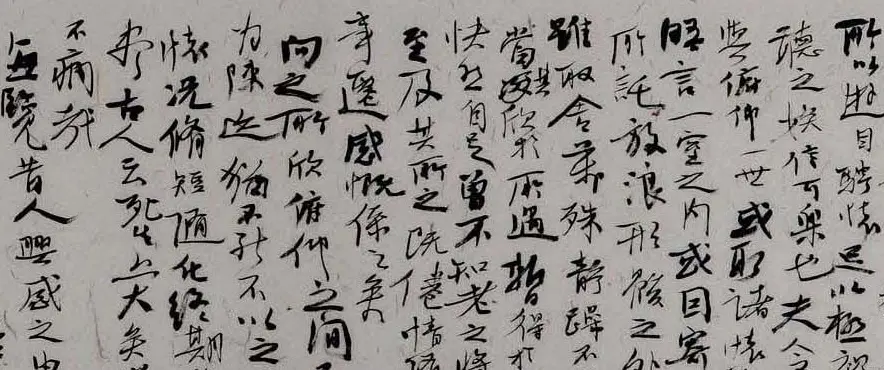 所以遊目騁懷足以極視
聽之娱信可樂也夫人
與俯仰一世或取諸懷
晤言一室之内或因寄
所託放浪形骸之外
雖取舍萬殊静躁不
當其欣於所遇暫得於
快然自足曾不知老之將
至及其所之既倦情随
事遷感慨係之矣
向之所欣俯仰之間
为陳迹猶不能不以之
懷况脩短隨化終期
盡古人云死生亦大矣
不痛哉
每覽昔人興感之由